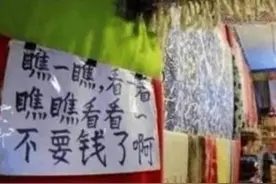 瞧一瞧,看一看
瞧瞧看看
不要钱了啊